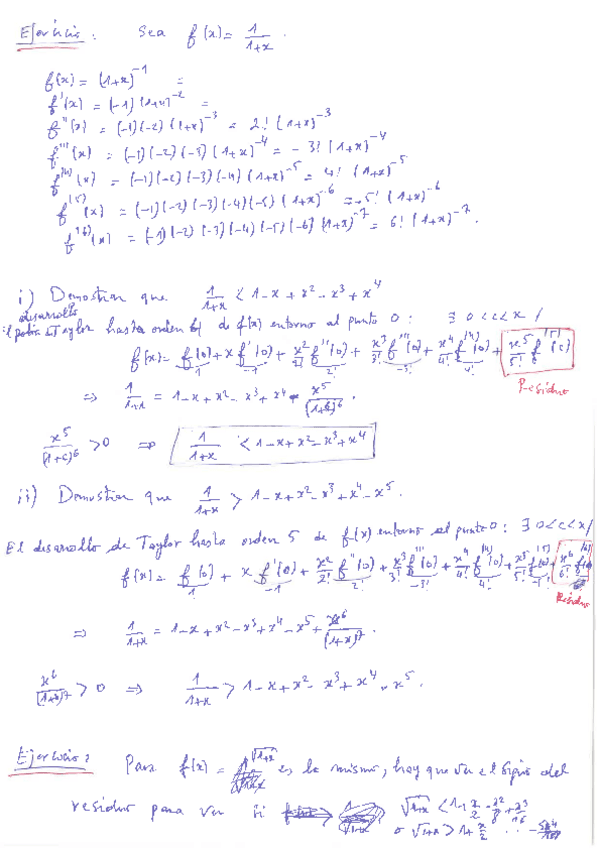 Ejercicio: Sea f(x) = 1/(1+x).
f(x) = (1+x)^-1 =
f'(x) = (-1)(1+x)^-2 =
f''(x) = (-1)(-2)(1+x)^-3 = 2! (1+x)^-3
f'''(x) = (-1)(-2)(-3)(1+x)^-4 = -3! (1+x)^-4
f^(4)(x) = (-1)(-2)(-3)(-4)(1+x)^-5 = 4! (1+x)^-5
f^(5)(x) = (-1)(-2)(-3)(-4)(-5)(1+x)^-6 = -5! (1+x)^-6
f^(6)(x) = (-1)(-2)(-3)(-4)(-5)(-6)(1+x)^-7 = 6! (1+x)^-7.
i) Demostrar que 1/(1+x) < 1-x+x^2-x^3+x^4
desarrollo
Taylor hasta orden 4 de f(x) entorno al punto 0: ∃ 0<c<x /
f(x) = f(0) + x f'(0) + x^2/2! f''(0) + x^3/3! f'''(0) + x^4/4! f^(4)(0) + x^5/5! f^(5)(c)
1 -1 2! -3! 4!
Residuo
⇒ 1/(1+x) = 1-x+x^2-x^3+x^4 - x^5/(1+c)^6.
x^5/(1+c)^6 > 0 ⇒ 1/(1+x) < 1-x+x^2-x^3+x^4
ii) Demostrar que 1/(1+x) > 1-x+x^2-x^3+x^4-x^5.
El desarollo de Taylor hasta orden 5 de f(x) entorno al punto 0: ∃ 0<c<x/
f(x) = f(0) + x f'(0) + x^2/2! f''(0) + x^3/3! f'''(0) + x^4/4! f^(4)(0) + x^5/5! f^(5)(0) + x^6/6! f^(6)
1 -1 2! -3! 4!
Residuo
⇒ 1/(1+x) = 1-x+x^2-x^3+x^4-x^5+x^6/(1+x)^7.
x^6/(1+x)^7 > 0 ⇒ 1/(1+x) > 1-x+x^2-x^3+x^4-x^5.
Ejercicio: Para f(x) = √(1+x) es lo mismo, hay que ver el signo del
residuo para ver si √(1+x) < 1+x/2-x^2/8+x^3/16
o √(1+x) > 1+x/2 ...